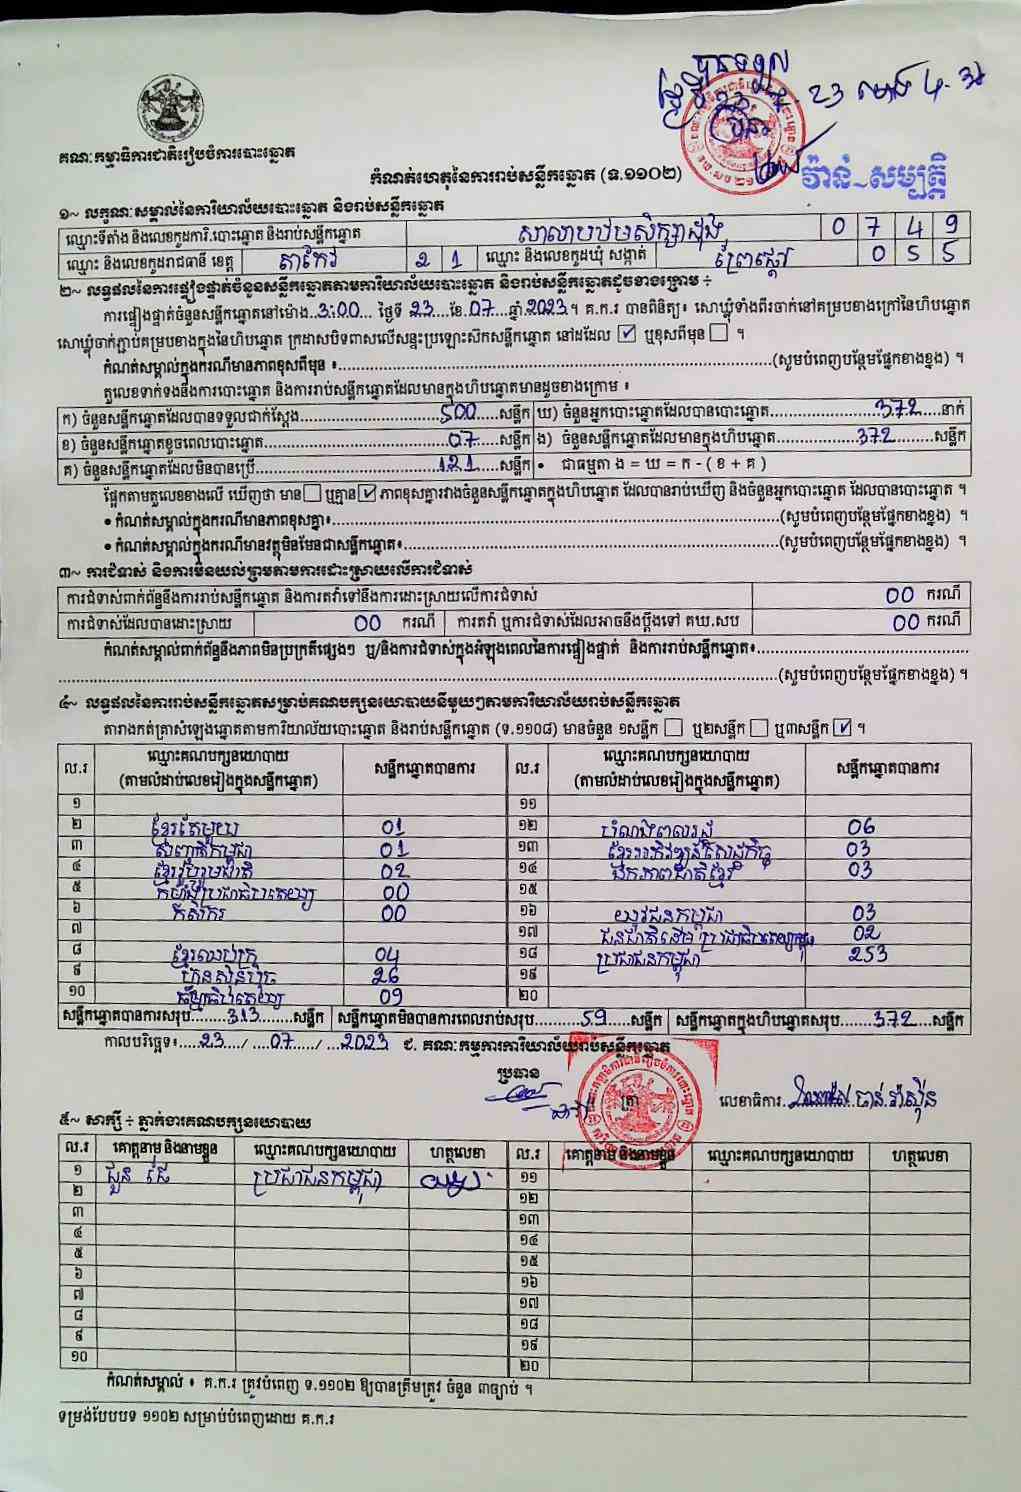 បានទទួល
គណៈកម្មាធិការជាតិរៀបចំការបោះឆ្នោត
កំណត់ហេតុនៃការរាប់សន្លឹកឆ្នោត (ទ.១១០២)
វ៉ាន់-សម្បត្តិ
១~ លក្ខណៈសម្គាល់នៃការិយាល័យបោះឆ្នោត និងរាប់សន្លឹកឆ្នោត
ឈ្មោះទីតាំង និងលេខកូដការិ.បោះឆ្នោត និងរាប់សន្លឹកឆ្នោត សាលាបឋមសិក្សា 0 7 4 9
ឈ្មោះ និងលេខកូដរាជធានី ខេត្ត តាកែវ 2 1 ឈ្មោះ និងលេខកូដឃុំ សង្កាត់ ព្រៃផ្ដៅ 0 5 5
២~ លទ្ធផលនៃការផ្ទៀងផ្ទាត់ចំនួនសន្លឹកឆ្នោតតាមការិយាល័យបោះឆ្នោត និងរាប់សន្លឹកឆ្នោតដូចខាងក្រោម ÷
ការផ្ទៀងផ្ទាត់ចំនួនសន្លឹកឆ្នោតនៅម៉ោង..3:00... ថ្ងៃទី 23...ខែ.07....ឆ្នាំ.2023.។ គ.ក.រ បានពិនិត្យ៖ សោឃ្លុំទាំងពីរចាក់នៅគម្របខាងក្រៅនៃហិបឆ្នោត
សោឃ្លុំចាក់ភ្ជាប់គម្របខាងក្នុងនៃហិបឆ្នោត ក្រដាសបិទពាសលើសន្ទះប្រឡោះស៊កសន្លឹកឆ្នោត នៅដដែល ☑ ឬខុសពីមុន ☐ ។
កំណត់សម្គាល់ក្នុងករណីមានភាពខុសពីមុន ៖........(សូមបំពេញបន្ថែមផ្នែកខាងខ្នង) ។
តួលេខទាក់ទងនឹងការបោះឆ្នោត និងការរាប់សន្លឹកឆ្នោតដែលមានក្នុងហិបឆ្នោតមានដូចខាងក្រោម ៖
ក) ចំនួនសន្លឹកឆ្នោតដែលបានទទួលជាក់ស្ដែង........500.....សន្លឹក ឃ) ចំនួនអ្នកបោះឆ្នោតដែលបានបោះឆ្នោត........372.....នាក់
ខ) ចំនួនសន្លឹកឆ្នោតខូចពេលបោះឆ្នោត........07.....សន្លឹក ង) ចំនួនសន្លឹកឆ្នោតដែលមានក្នុងហិបឆ្នោត........372........សន្លឹក
គ) ចំនួនសន្លឹកឆ្នោតដែលមិនបានប្រើ........121.....សន្លឹក • ជាធម្មតា ង = ឃ = ក - ( ខ + គ )
ផ្អែកតាមតួលេខខាងលើ ឃើញថា មាន☐ ឬគ្មាន☑ ភាពខុសគ្នារវាងចំនួនសន្លឹកឆ្នោតក្នុងហិបឆ្នោត ដែលបានរាប់ឃើញ និងចំនួនអ្នកបោះឆ្នោត ដែលបានបោះឆ្នោត ។
• កំណត់សម្គាល់ក្នុងករណីមានភាពខុសគ្នា៖........(សូមបំពេញបន្ថែមផ្នែកខាងខ្នង) ។
• កំណត់សម្គាល់ក្នុងករណីមានវត្ថុមិនមែនជាសន្លឹកឆ្នោត៖........(សូមបំពេញបន្ថែមផ្នែកខាងខ្នង) ។
៣~ ការជំទាស់ និងការមិនយល់ព្រមតាមការដោះស្រាយលើការជំទាស់
ការជំទាស់ពាក់ព័ន្ធនឹងការរាប់សន្លឹកឆ្នោត និងការតវ៉ាទៅនឹងការដោះស្រាយលើការជំទាស់ 00 ករណី
ការជំទាស់ដែលបានដោះស្រាយ 00 ករណី ការតវ៉ា ឬការជំទាស់ដែលអាចនឹងប្ដឹងទៅ គឃ.សប 00 ករណី
កំណត់សម្គាល់ពាក់ព័ន្ធនឹងភាពមិនប្រក្រតីផ្សេងៗ ឬ/និងការជំទាស់ក្នុងអំឡុងពេលនៃការផ្ទៀងផ្ទាត់ និងការរាប់សន្លឹកឆ្នោត៖........
........(សូមបំពេញបន្ថែមផ្នែកខាងខ្នង) ។
៤~ លទ្ធផលនៃការរាប់សន្លឹកឆ្នោតសម្រាប់គណបក្សនយោបាយនីមួយៗតាមការិយាល័យរាប់សន្លឹកឆ្នោត
តារាងកត់ត្រាសំឡេងឆ្នោតតាមការិយាល័យបោះឆ្នោត និងរាប់សន្លឹកឆ្នោត (ទ.១១០៨) មានចំនួន ១សន្លឹក ☐ ឬ២សន្លឹក ☐ ឬ៣សន្លឹក ☑ ។
ល.រ ឈ្មោះគណបក្សនយោបាយ (តាមលំដាប់លេខរៀងក្នុងសន្លឹកឆ្នោត) សន្លឹកឆ្នោតបានការ ល.រ ឈ្មោះគណបក្សនយោបាយ (តាមលំដាប់លេខរៀងក្នុងសន្លឹកឆ្នោត) សន្លឹកឆ្នោតបានការ
១ ១១
២ ខ្មែរតែមួយ 01 ១២ បំណងពលរដ្ឋ 06
៣ សញ្ជាតិកម្ពុជា 01 ១៣ ខ្មែរអភិវឌ្ឍន៍សេដ្ឋកិច្ច 03
៤ ខ្មែររួបរួមជាតិ 02 ១៤ ឯកភាពជាតិខ្មែរ 03
៥ កម្លាំងប្រជាធិបតេយ្យ 00 ១៥
៦ កសិករ 00 ១៦ យុវជនកម្ពុជា 03
៧ ១៧ ជនជាតិដើមប្រជាធិបតេយ្យកម្ពុជា 02
៨ ខ្មែរឈប់ក្រ 04 ១៨ ប្រជាជនកម្ពុជា 253
៩ ហ៊្វុនស៊ិនប៉ិច 26 ១៩
១០ ធម្មាធិបតេយ្យ 09 ២០
សន្លឹកឆ្នោតបានការសរុប........313......សន្លឹក សន្លឹកឆ្នោតមិនបានការពេលរាប់សរុប..........59.....សន្លឹក សន្លឹកឆ្នោតក្នុងហិបឆ្នោតសរុប.......372......សន្លឹក
កាលបរិច្ឆេទ៖....23..../....07....../....2023 ជ. គណៈកម្មការការិយាល័យរាប់សន្លឹកឆ្នោត
ប្រធាន ត្រា លេខាធិការ
៥~ សាក្សី ÷ ភ្នាក់ងារគណបក្សនយោបាយ
ល.រ គោត្តនាម និងនាមខ្លួន ឈ្មោះគណបក្សនយោបាយ ហត្ថលេខា ល.រ គោត្តនាម និងនាមខ្លួន ឈ្មោះគណបក្សនយោបាយ ហត្ថលេខា
១ ប្រជាជនកម្ពុជា ១១
២ ១២
៣ ១៣
៤ ១៤
៥ ១៥
៦ ១៦
៧ ១៧
៨ ១៨
៩ ១៩
១០ ២០
កំណត់សម្គាល់ ៖ គ.ក.រ ត្រូវបំពេញ ទ.១១០២ ឱ្យបានត្រឹមត្រូវ ចំនួន ៣ច្បាប់ ។
ទម្រង់បែបបទ ១១០២ សម្រាប់បំពេញដោយ គ.ក.រ